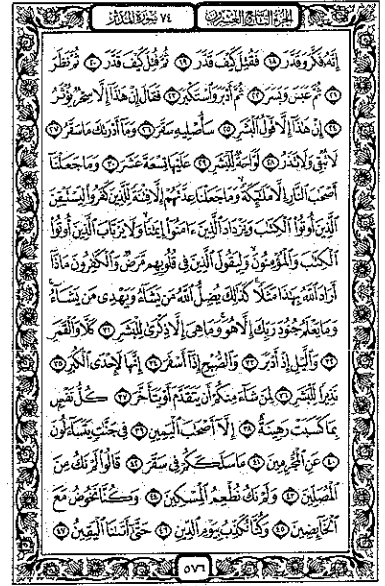 الجزء التاسع والعشرون ٧٤ سورة المدثر
إِنَّهُ فَكَّرَ وَقَدَّرَ ١٨ فَقُتِلَ كَيْفَ قَدَّرَ ١٩ ثُمَّ قُتِلَ كَيْفَ قَدَّرَ ٢٠ ثُمَّ نَظَرَ
٢١ ثُمَّ عَبَسَ وَبَسَرَ ٢٢ ثُمَّ أَدْبَرَ وَاسْتَكْبَرَ ٢٣ فَقَالَ إِنْ هَٰذَا إِلَّا سِحْرٌ يُؤْثَرُ
٢٤ إِنْ هَٰذَا إِلَّا قَوْلُ الْبَشَرِ ٢٥ سَأُصْلِيهِ سَقَرَ ٢٦ وَمَا أَدْرَىٰكَ مَا سَقَرُ ٢٧
لَا تُبْقِي وَلَا تَذَرُ ٢٨ لَوَّاحَةٌ لِّلْبَشَرِ ٢٩ عَلَيْهَا تِسْعَةَ عَشَرَ ٣٠ وَمَا جَعَلْنَا
أَصْحَٰبَ النَّارِ إِلَّا مَلَٰئِكَةً وَمَا جَعَلْنَا عِدَّتَهُمْ إِلَّا فِتْنَةً لِّلَّذِينَ كَفَرُوا لِيَسْتَيْقِنَ
الَّذِينَ أُوتُوا الْكِتَٰبَ وَيَزْدَادَ الَّذِينَ ءَامَنُوا إِيمَٰنًا وَلَا يَرْتَابَ الَّذِينَ أُوتُوا
الْكِتَٰبَ وَالْمُؤْمِنُونَ وَلِيَقُولَ الَّذِينَ فِي قُلُوبِهِم مَّرَضٌ وَالْكَٰفِرُونَ مَاذَا
أَرَادَ اللَّهُ بِهَٰذَا مَثَلًا كَذَٰلِكَ يُضِلُّ اللَّهُ مَن يَشَاءُ وَيَهْدِي مَن يَشَاءُ
وَمَا يَعْلَمُ جُنُودَ رَبِّكَ إِلَّا هُوَ وَمَا هِيَ إِلَّا ذِكْرَىٰ لِلْبَشَرِ ٣١ كَلَّا وَالْقَمَرِ
٣٢ وَالَّيْلِ إِذْ أَدْبَرَ ٣٣ وَالصُّبْحِ إِذَا أَسْفَرَ ٣٤ إِنَّهَا لَإِحْدَى الْكُبَرِ ٣٥
نَذِيرًا لِّلْبَشَرِ ٣٦ لِمَن شَاءَ مِنكُمْ أَن يَتَقَدَّمَ أَوْ يَتَأَخَّرَ ٣٧ كُلُّ نَفْسٍ
بِمَا كَسَبَتْ رَهِينَةٌ ٣٨ إِلَّا أَصْحَٰبَ الْيَمِينِ ٣٩ فِي جَنَّٰتٍ يَتَسَاءَلُونَ
٤٠ عَنِ الْمُجْرِمِينَ ٤١ مَا سَلَكَكُمْ فِي سَقَرَ ٤٢ قَالُوا لَمْ نَكُ مِنَ
الْمُصَلِّينَ ٤٣ وَلَمْ نَكُ نُطْعِمُ الْمِسْكِينَ ٤٤ وَكُنَّا نَخُوضُ مَعَ
الْخَائِضِينَ ٤٥ وَكُنَّا نُكَذِّبُ بِيَوْمِ الدِّينِ ٤٦ حَتَّىٰ أَتَىٰنَا الْيَقِينُ ٤٧
٥٧٦